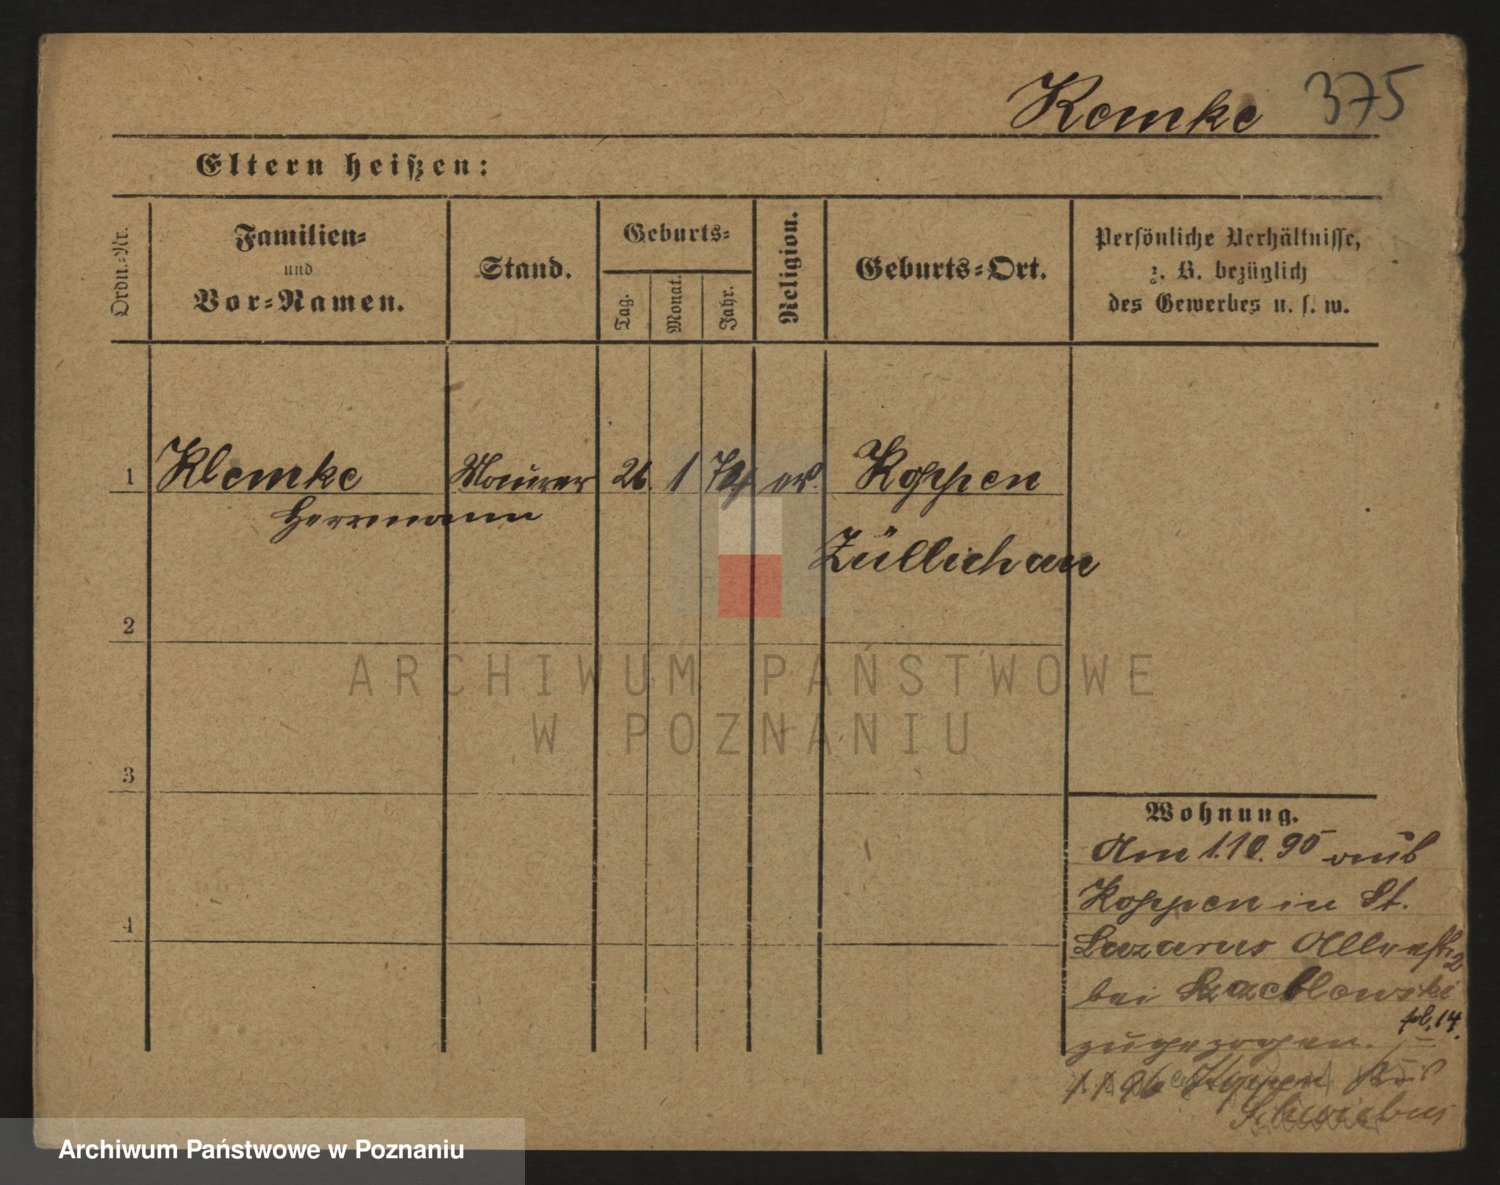 Kemke 375
Eltern heißen:
Ordn.-Nr.
Familien-
und
Vor-Namen.
Stand.
Geburts-
Tag.
Monat.
Jahr.
Religion.
Geburts-Ort.
Persönliche Verhältnisse,
z. B. bezüglich
des Gewerbes u. s. w.
1 Klemke Maurer 26. 1 74 ev. Koppen
Herrmann
Züllichau
2
3
4
Wohnung.
Am 1.10.95 aus
Koppen in St.
Lazarus
bei
fol. 14.
zugezogen.
1.1.96 Koppen Krs
Schwiebus
ARCHIWUM PAŃSTWOWE
W POZNANIU
Archiwum Państwowe w Poznaniu